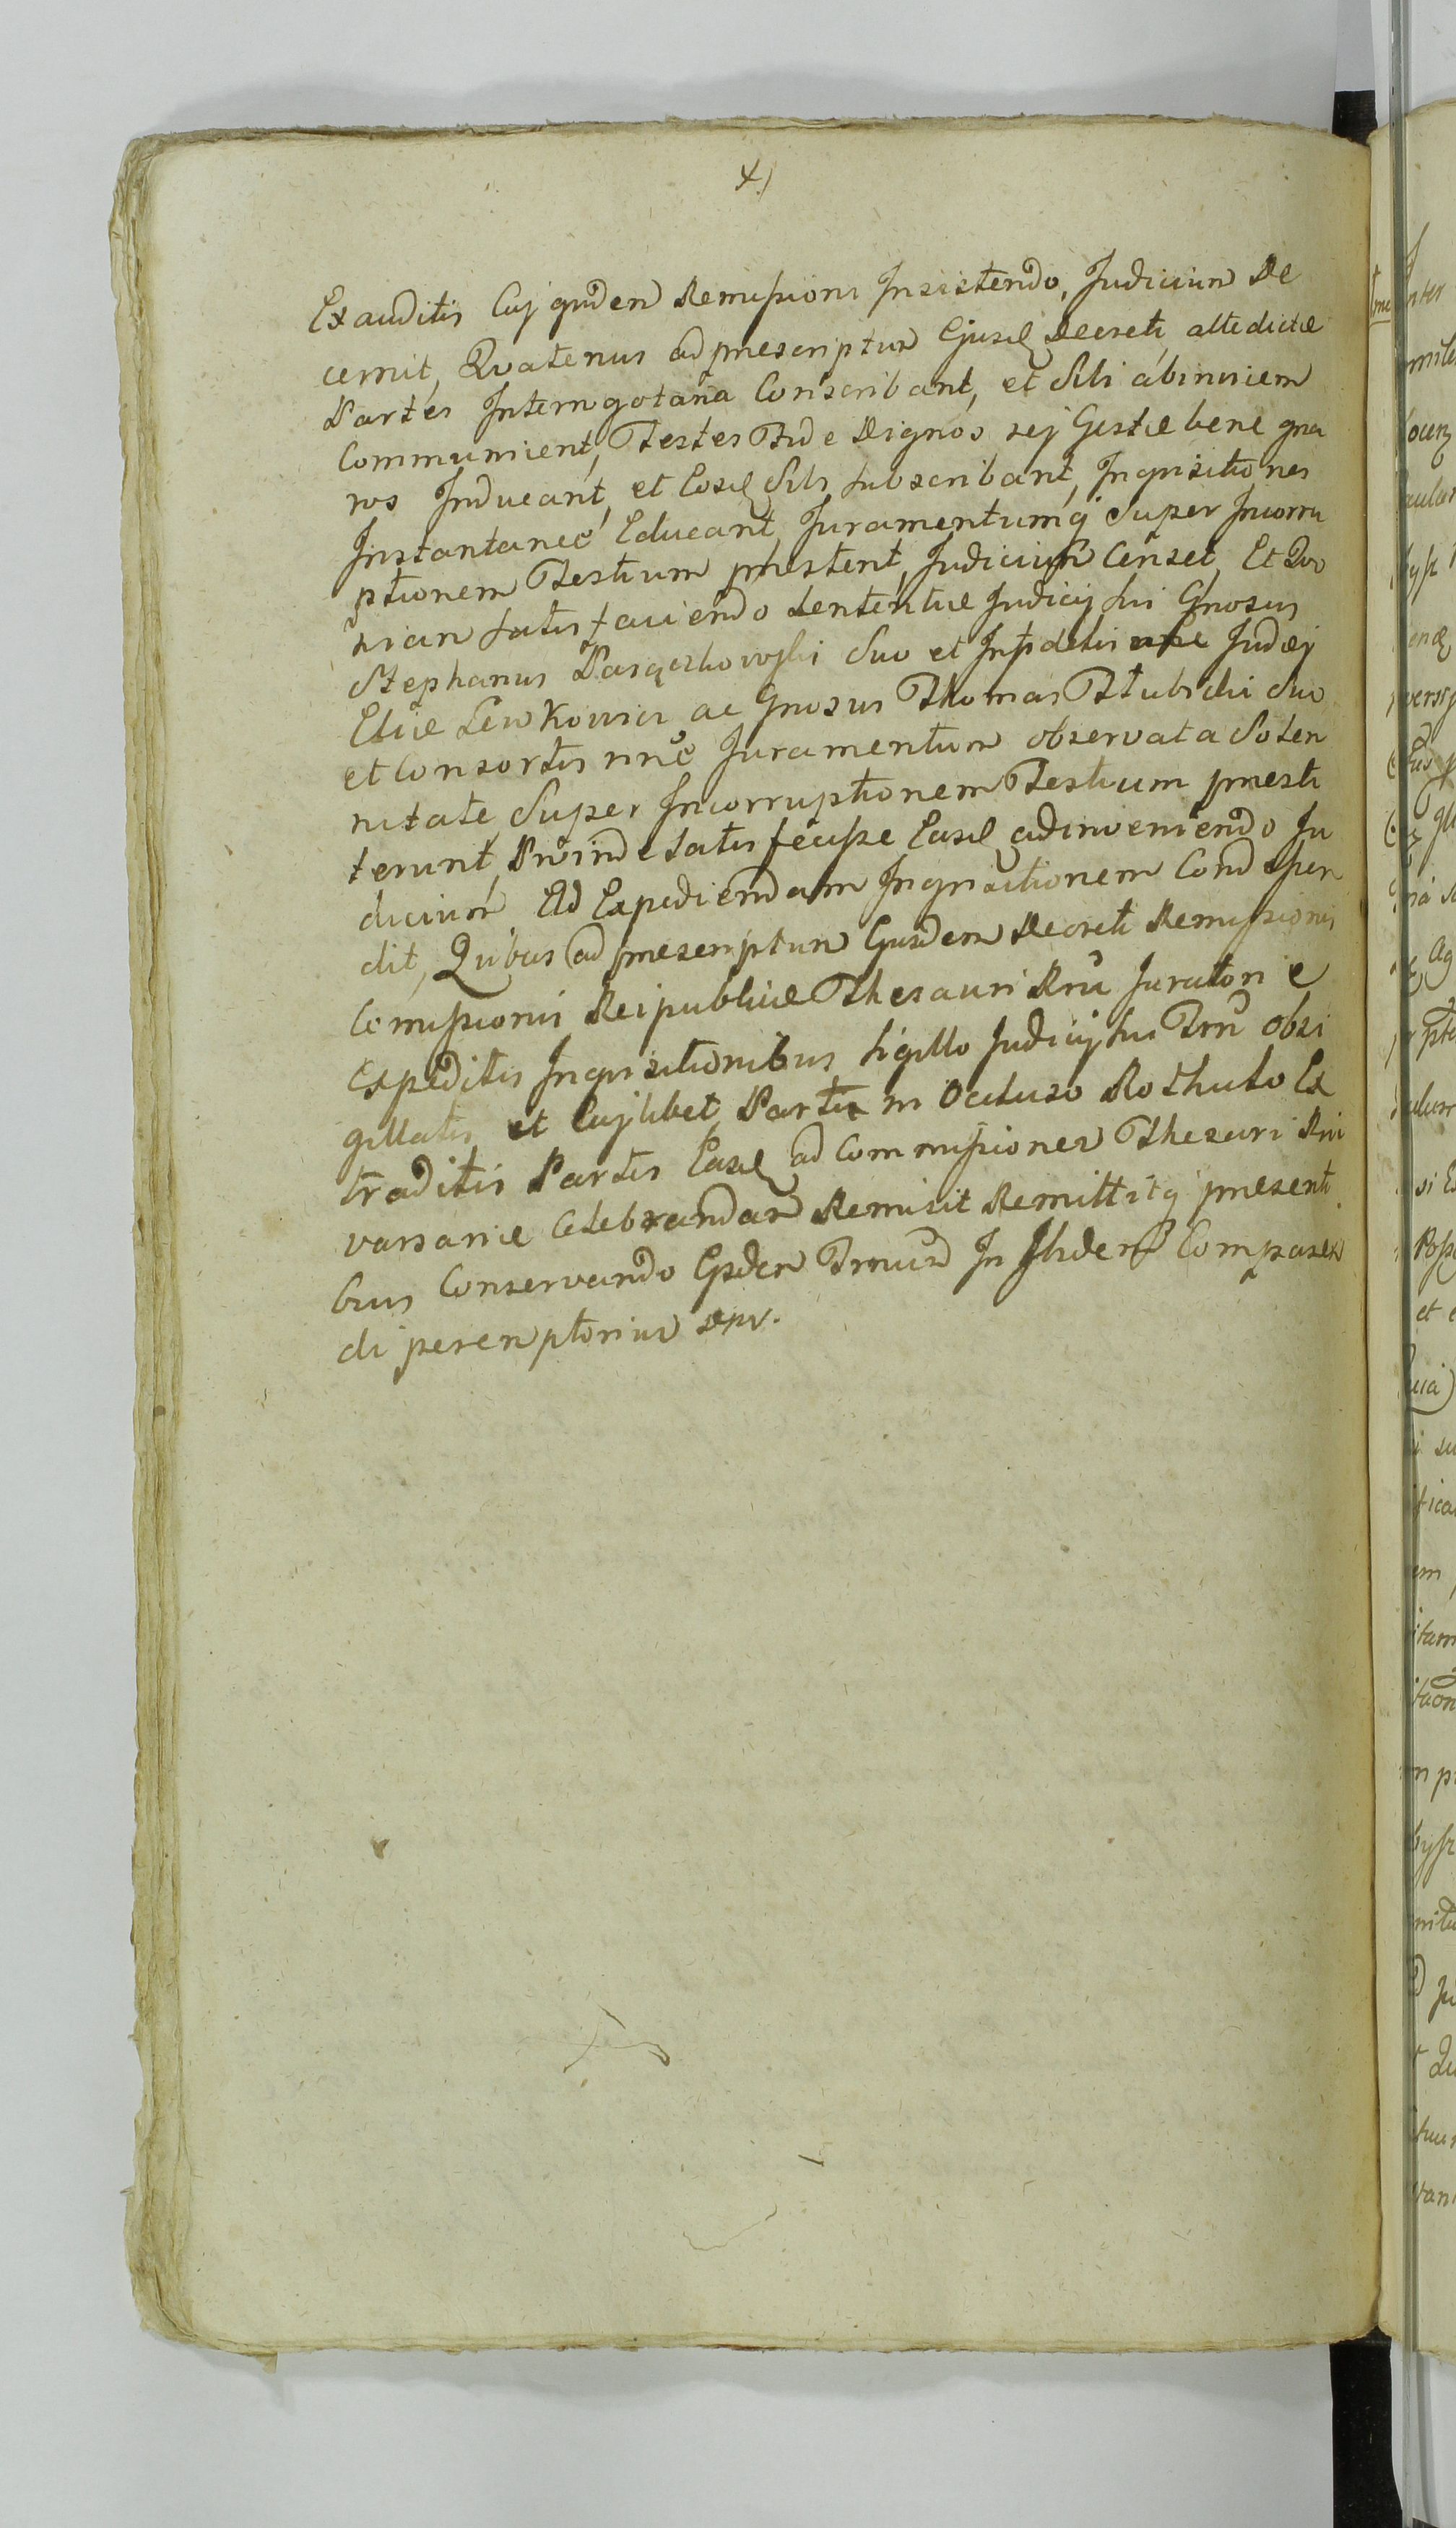 4)
Exauditis Cuj quidem Remissioni Insistendo, Judicium De
cernit, Qvatenus ad praescriptum Ejusd Decreti attedictae
Partes Interrogatoria Conscribant, et Sibi ábinvicem
Communicent, Testes Fide Dignos rej Gestae bene gna
ros Inducant, et Eosd Sibi Subscribant, Inquisitiones
Instantanee Educant, Juramentumq Super Incorru
ptionem Testium praestent, Judicium Censet, Et Qvo
niam Satisfaciendo Sententiae Judicij Sui Gnosus
Stephanus Suo et Infidelis Judaej
Eliae Lewkowicz ac Gnosus Thomas Suo
et Consortis nne Juramentum observata Solen
nitate Super Incorruptionem Testium praesti
terunt, Proinde Satisfecisse Easd adinveniendo Ju
dicium Ad Expediendam Inquisitionem Condescen
dit, Quibus ad praescriptum Ejusdem Decreti Remissionis
Comissionis Reipublicae Thesauri Rni Juratorie
Expeditis Inquisitionibus Sigillo Judicij Sui Trni obsi
gillatis et Cujlibet Parti in Occluso Rothulo Ex
traditis Partes Easd ad Commissiones Thesauri Rni
varsaviae Celebrandas Remisit Remittitq praesenti
bus Conservando Eisdem Trmum In Ibidem Comparen
di peremptorium